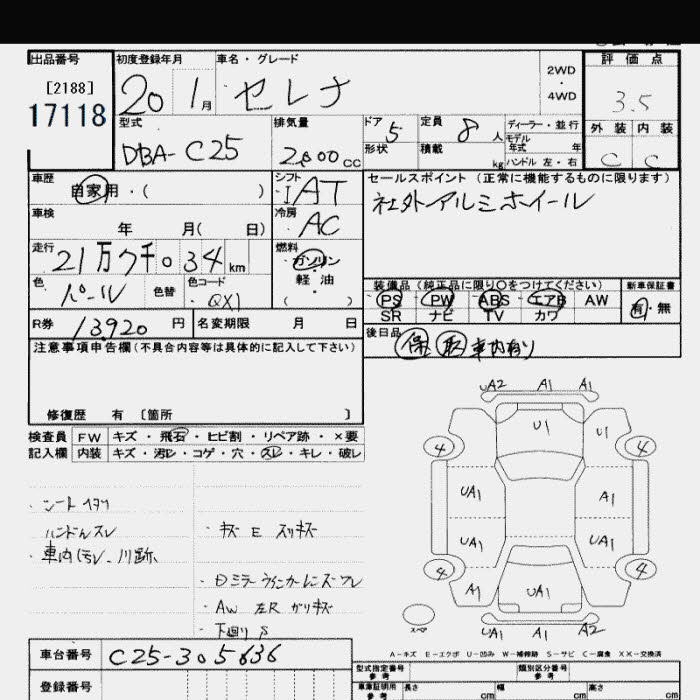 出品番号 初度登録年月 車名・グレード 評価点
[2188] 20 1月 セレナ 2WD・4WD 3.5
17118
型式 排気量 ドア 5 定員 8人 ディーラー・並行 外装 内装
DBA-C25 2,000cc 形状 積載 kg モデル年式 年 ハンドル 左・右 C C
車歴 シフト セールスポイント (正常に機能するものに限ります)
自家用・( ) I AT 社外アルミホイール
車検 冷房
年 月( 日) AC
走行 燃料
21万9千034km ガソリン・軽油 ( )
色 色替 色コード 装備品 (純正品に限り○をつけてください) 新車保証書
パール QX1 PS PW ABS エアB AW 有・無
SR ナビ TV カワ
R券 13920円 名変期限 月 日 後日品
保 取 車内有り
注意事項申告欄 (不具合内容等は具体的に記入して下さい)
修復歴 有 [箇所 ]
検査員 FW キズ・飛石・ヒビ割・リペア跡・×要
記入欄 内装 キズ・汚レ・コゲ・穴・スレ・キレ・破レ
UA2 A1 A1
U1 U1
4 4
UA1 A1
UA1 UA1
4 4
A1 UA1
UA1 A1 A2
・シートヘタリ
ハンドルスレ ・キズ E スリキズ
・車内汚レ
・Dミラーウインカーレンズ
・AW 左R ガリキズ
・下廻りS
A-キズ E-エクボ U-凹み W-補修跡 S-サビ C-腐食 XX-交換済
車台番号 C25-305636
型式指定番号 参考 類別区分番号 参考
登録番号 車庫証明用 参考 長さ cm 幅 cm 高さ cm